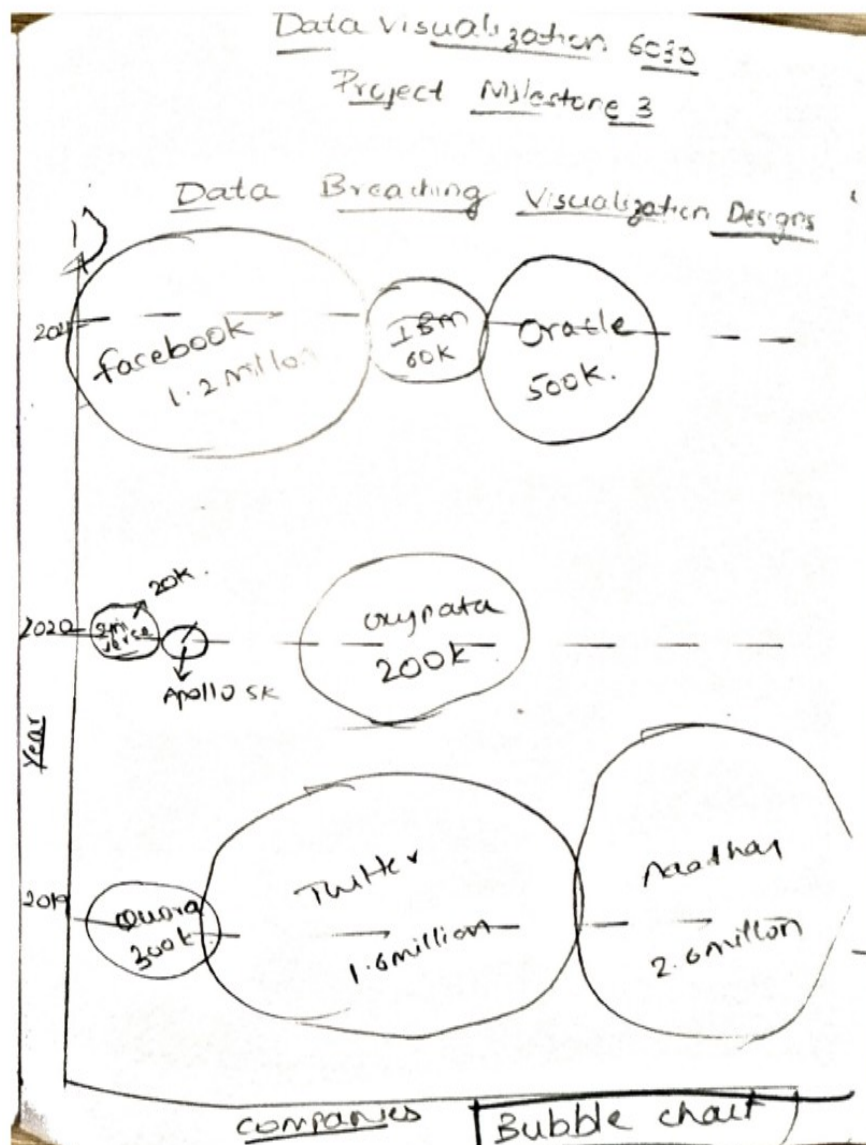 Data Visualization 6030
Project Milestone 3
Data Breaching Visualization Designs
1)
facebook
1.2 millon
IBM
60k
Oracle
500k.
2020
20k.
Apollo 5k
200k
Year
2019
Quora
300k
Twitter
1.6million
Aadhar
2.6millon
Companies
Bubble chart